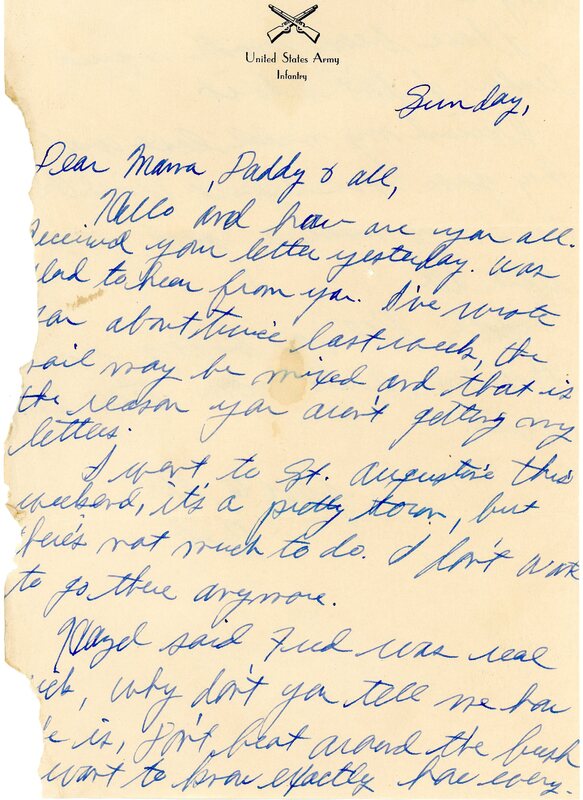 United States Army
Infantry
Sunday,
Dear Mama, Daddy & all,
Hello and how are you all.
Received your letter yesterday. Was
Glad to hear from you. I've wrote
you about twice last week, the
mail may be mixed and that is
the reason you aren't getting my
letters.
I went to St. Augustine this
weekend, it's a pretty town, but
there's not much to do. I don't want
to go there anymore.
Hazel said Fred was real
sick, why don't you tell me how
he is, don't beat around the bush
I want to know exactly how every-